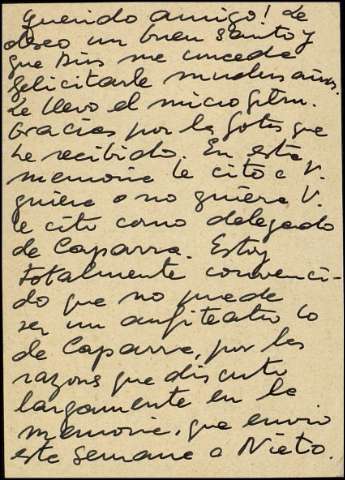 Querido amigo! Le
deseo un buen santo y
que Dios me conceda
felicitarle muchos años.
Le llevo el microfilm.
Gracias por las fotos que
he recibido. En esta
memoria le cito a V.
quiera o no quiera V.
le cito como delegado
de Caparra. Estoy
totalmente convenci-
do que no puede
ser un anfiteatro lo
de Caparra, por las
razones que discuto
largamente en la
memoria, que envio
esta semana a Nieto.